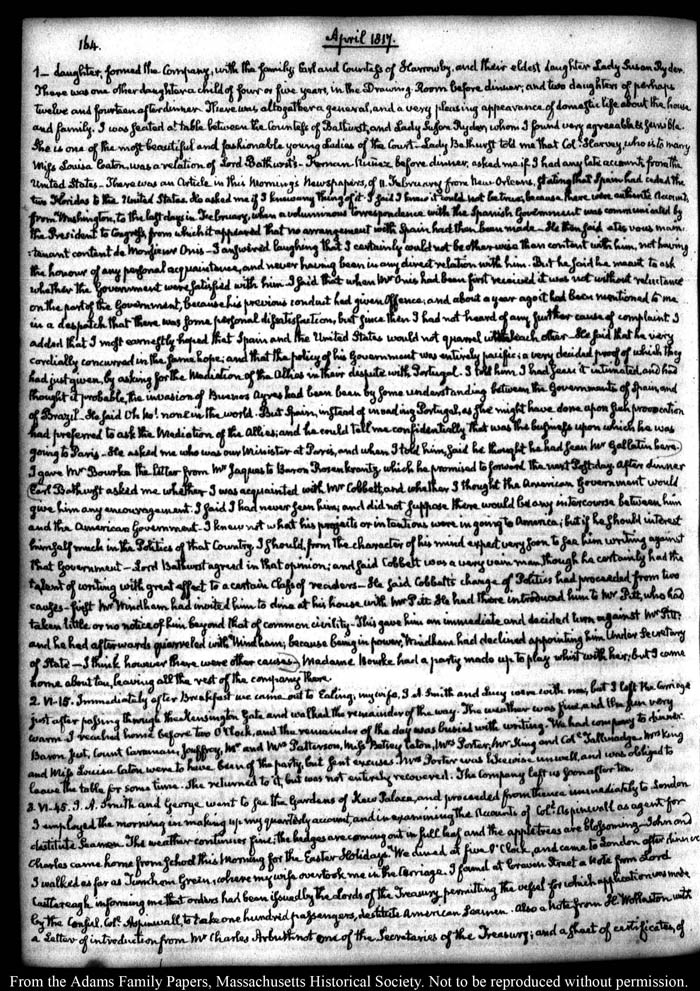 164.
April 1817.
1— daughter, formed the Company, with the family, Earl and Countess of Harrowby, and their eldest daughter Lady Susan Ryder.
There was one other daughter a child of four or five years, in the Drawing Room before dinner; and two daughters of perhaps
twelve and fourteen after dinner. There was altogether a general, and a very pleasing appearance of domestic life about the house
and family. I was seated at table between the Countess of Bathurst, and Lady Susan Ryder, whom I found very agreeable & sensible.
She is one of the most beautiful and fashionable young Ladies of the Court— Lady Bathurst told me that Col. Harvey, who is to marry
Miss Louisa Caton, was a relation of Lord Bathurst's— Fernan Nuñez before dinner, asked me if I had any late accounts from the
United States— There was an Article in this Morning's Newspapers, of 11. February from New-Orleans, stating that Spain had ceded the
two Floridas to the United States. He asked me if I knew any thing of it. I said I knew it could not be true, because there were authentic Accounts,
from Washington, to the last days in February, when a voluminous correspondence with the Spanish Government was communicated by
the President to Congress from which it appeared that no arrangement with Spain had then been made— He then said etes vous main-
:tenant content de Monsieur Onis— I answered laughing that I certainly could not be otherwise than content with him, not having
the honour of any personal acquaintance, and never having been in any direct relation with him. But he said he meant to ask
whether the Government were satisfied with him. I said that when Mr Onis had been first received it was not without reluctance
on the part of the Government, because his previous conduct had given Offence; and about a year ago it had been mentioned to me
in a despatch that there was some personal dissatisfaction, but since then I had not heard of any further cause of complaint. I
added that I most earnestly hoped that Spain and the United States would not quarrel with each other— He said that he very
cordially concurred in the same hope; and that the policy of his Government was entirely pacific; a very decided proof of which they
had just given, by asking for the Mediation of the Allies in their dispute with Portugal. I told him I had seen it intimated, and had
thought it probable, the invasion of Buenos Ayres had been by some understanding between the Governments of Spain and
of Brazil— He said Oh No! none in the world. But Spain, instead of invading Portugal, as she might have done upon such provocation
had preferred to ask the Mediation of the Allies; and he could tell me confidentially that was the business upon which he was
going to Paris— He asked me who was our Minister at Paris, and when I told him, said he thought he had seen Mr Gallatin here.
I gave Mr Bourke the letter from Mr Jaques to Baron Rosenkrantz, which he promised to forward the next Post-day. After dinner
Earl Bathurst asked me whether I was acquainted with Mr Cobbett, and whether I thought the American Government would
give him any encouragement. I said I had never seen him; and did not suppose there would be any intercourse between him
and the American Government— I knew not what his projects or intentions were in going to America; but if he should interest
himself much in the Politics of that Country, I should, from the character of his mind expect very soon to see him writing against
that Government— Lord Bathurst agreed in that opinion; and said Cobbett was a very vain man, though he certainly had the
talent of writing with great effect to a certain class of readers— He said Cobbett's change of Politics had proceeded from two
causes— first Mr Windham had invited him to dine at his house with Mr Pitt. He had there introduced him to Mr Pitt, who had
taken little or no notice of him beyond that of common civility— This gave him an immediate and decided turn against Mr Pitt:
and he had afterwards quarreled with Windham; because being in power, Windham had declined appointing him Under Secretary
of State— I think however there were other causes. Madame Bourke had a party made up to play whist with her; but I came
home about ten, leaving all the rest of the company there.
2. VI-15. Immediately after Breakfast we came out to Ealing; my wife, I. A. Smith and Lucy were with me, but I left the Carriage
just after passing through the Kensington Gate and walked the remainder of the way. The weather was fine, and the Sun very
warm. I reached home before two O'Clock, and the remainder of the day was busied with writing. We had company to dinner.
Baron Just, Count Caraman, Jouffroy, Mr and Mrs Patterson, Miss Betsey Caton, Mrs Porter, Mr King and Col. Tallmadge. Mrs King
and Miss Louisa Caton were to have been of the party, but sent excuses. Mrs Porter was likewise unwell, and was obliged to
leave the table for some time. She returned to it, but was not entirely recovered. The Company left us soon after ten.
3. VI-45. I. A. Smith and George went to see the Gardens of Kew Palace, and proceeded from thence immediately to London
I employed the morning in making up my quarterly account, and in examining the Accounts of Col. Aspinwall as agent for
destitute Seamen. The weather continues fine; the hedges are coming out in full leaf and the apple trees are blossoming— John and
Charles came home from School this Morning for the Easter Holidays. We dined at five O'Clock, and came to London after dinner
I walked as far as Turnham Green, where my wife overtook me in the Carriage. I found at Craven Street a Note from Lord
Castlereagh informing me that orders had been issued by the Lords of the Treasury, permitting the vessel for which application was made
by the Consul, Col. Aspinwall, to take one hundred passengers, destitute American Seamen. Also a Note from H. Wollaston with
a Letter of introduction from Mr Charles Arbuthnot one of the Secretaries of the Treasury; and a sheet of certificates, of
From the Adams Family Papers, Massachusetts Historical Society. Not to be reproduced without permission.